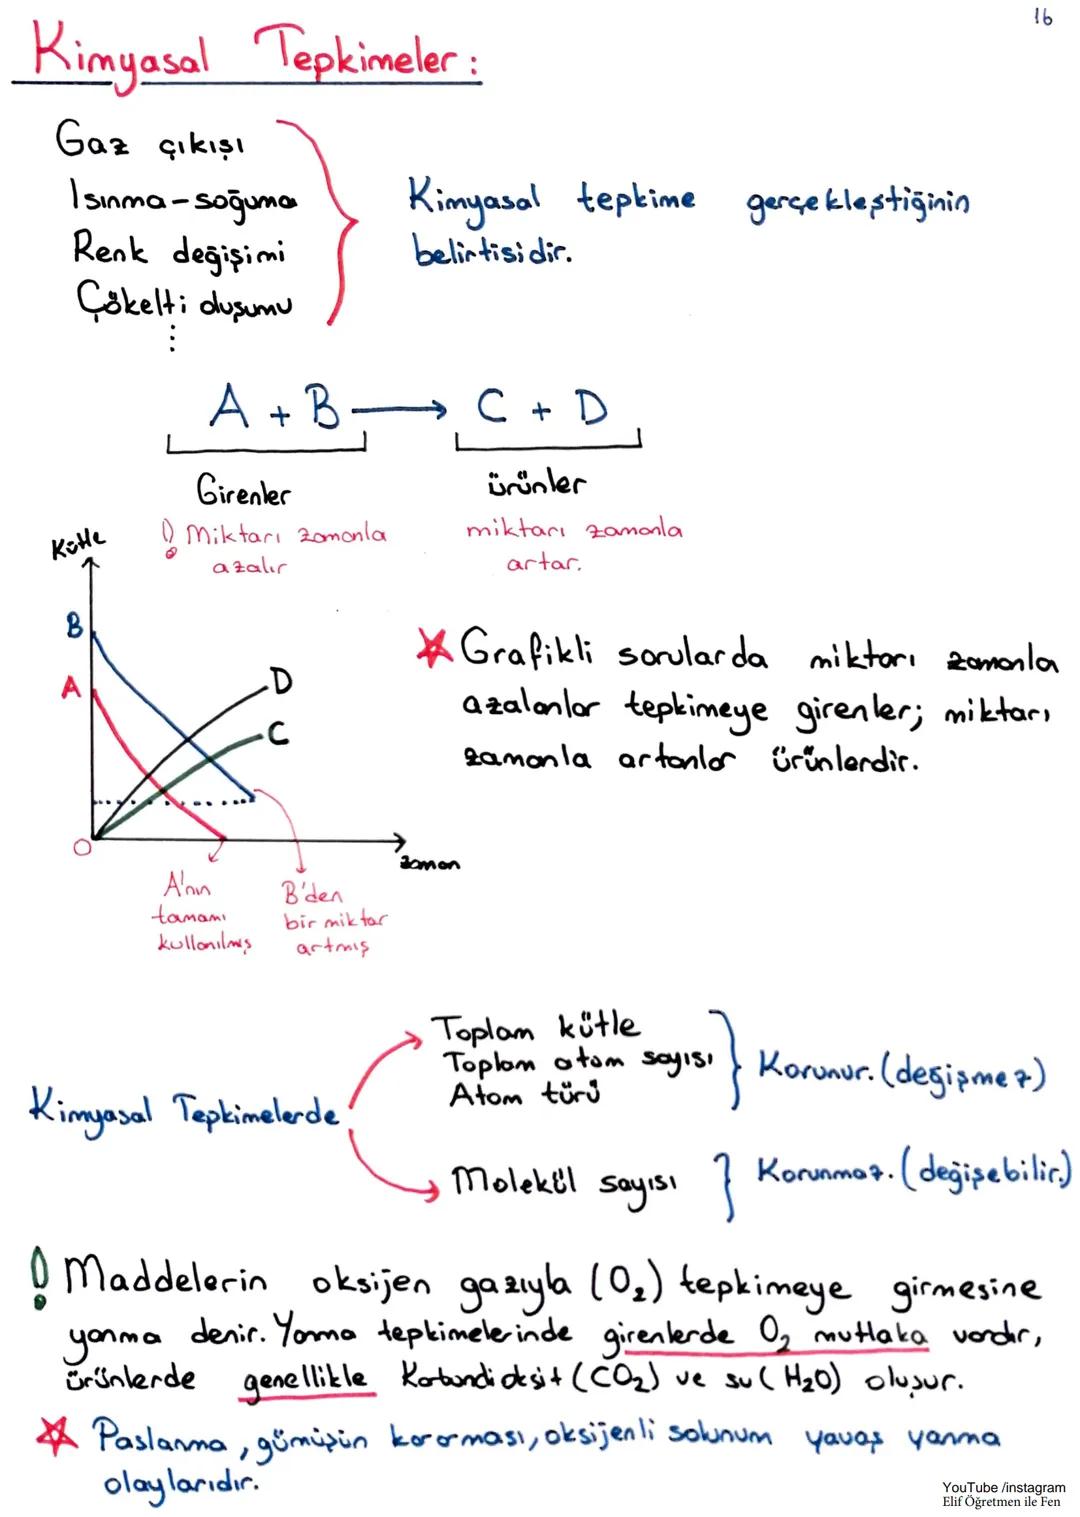 16
Kimyasal Tepkimeler:
Gaz çıkışı
Isınma-soğuma
Renk değişimi
Çökelti oluşumu
Kimyasal tepkime gerçekleştiğinin
belirtisidir.
A + B → C + D
Girenler
ürünler
! Miktarı zamanla
azalır
miktarı zamanla
artar.
Kütle
B
A
D
C
O
zaman
A'nın
tamamı
kullanılmış
B'den
bir miktar
artmış
★ Grafikli sorularda miktarı zamanla
azalanlar tepkimeye girenler; miktarı
zamanla artanlar ürünlerdir.
Kimyasal Tepkimelerde
Toplam kütle
Toplam atom sayısı
Atom türü
Korunur. (değişmez)
Molekül sayısı
Korunmaz. (değişebilir.)
! Maddelerin oksijen gazıyla (O₂) tepkimeye girmesine
yanma denir. Yanma tepkimelerinde girenlerde O₂ mutlaka vardır,
ürünlerde genellikle Karbondioksit (CO₂) ve su (H₂O) oluşur.
★ Paslanma, gümüşün kararması, oksijenli solunum yavaş yanma
olaylarıdır.
YouTube /instagram
Elif Öğretmen ile Fen